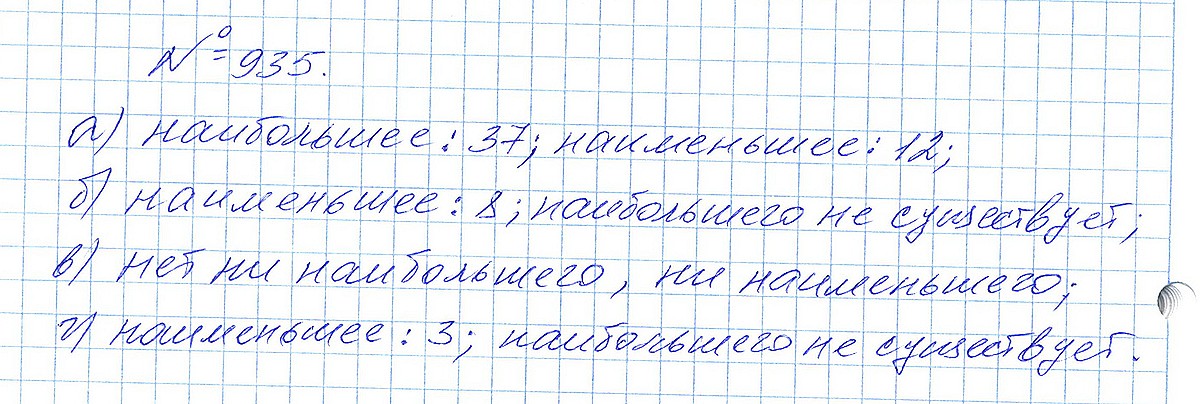 № 935.
а) наибольшее: 37; наименьшее: 12;
б) наименьшее: 8; наибольшего не существует;
в) нет ни наибольшего, ни наименьшего;
г) наименьшее: 3; наибольшего не существует.